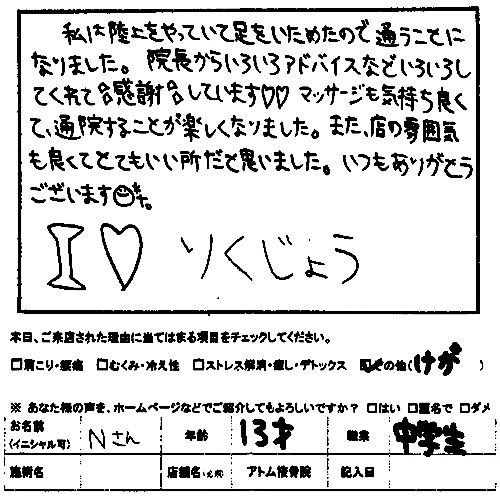 私は陸上をやっていて足をいためたので通うことに
なりました。院長からいろいろアドバイスなどいろいろし
てくれて感謝しています♡♡マッサージも気持ち良く
て、通院することが楽しくなりました。また、店の雰囲気
も良くてとてもいい所だと思いました。いつもありがとう
ございます
I♡りくじょう
本日、ご来店された理由に当てはまる項目をチェックしてください。
□肩こり・腰痛 □むくみ・冷え性 □ストレス解消・癒し・デトックス ☑その他(けが)
※ あなた様の声を、ホームページなどでご紹介してもよろしいですか? □はい □匿名で □ダメ
お名前(イニシャル可) Nさん 年齢 13才 職業 中学生
施術名 店舗名 アトム接骨院 記入日